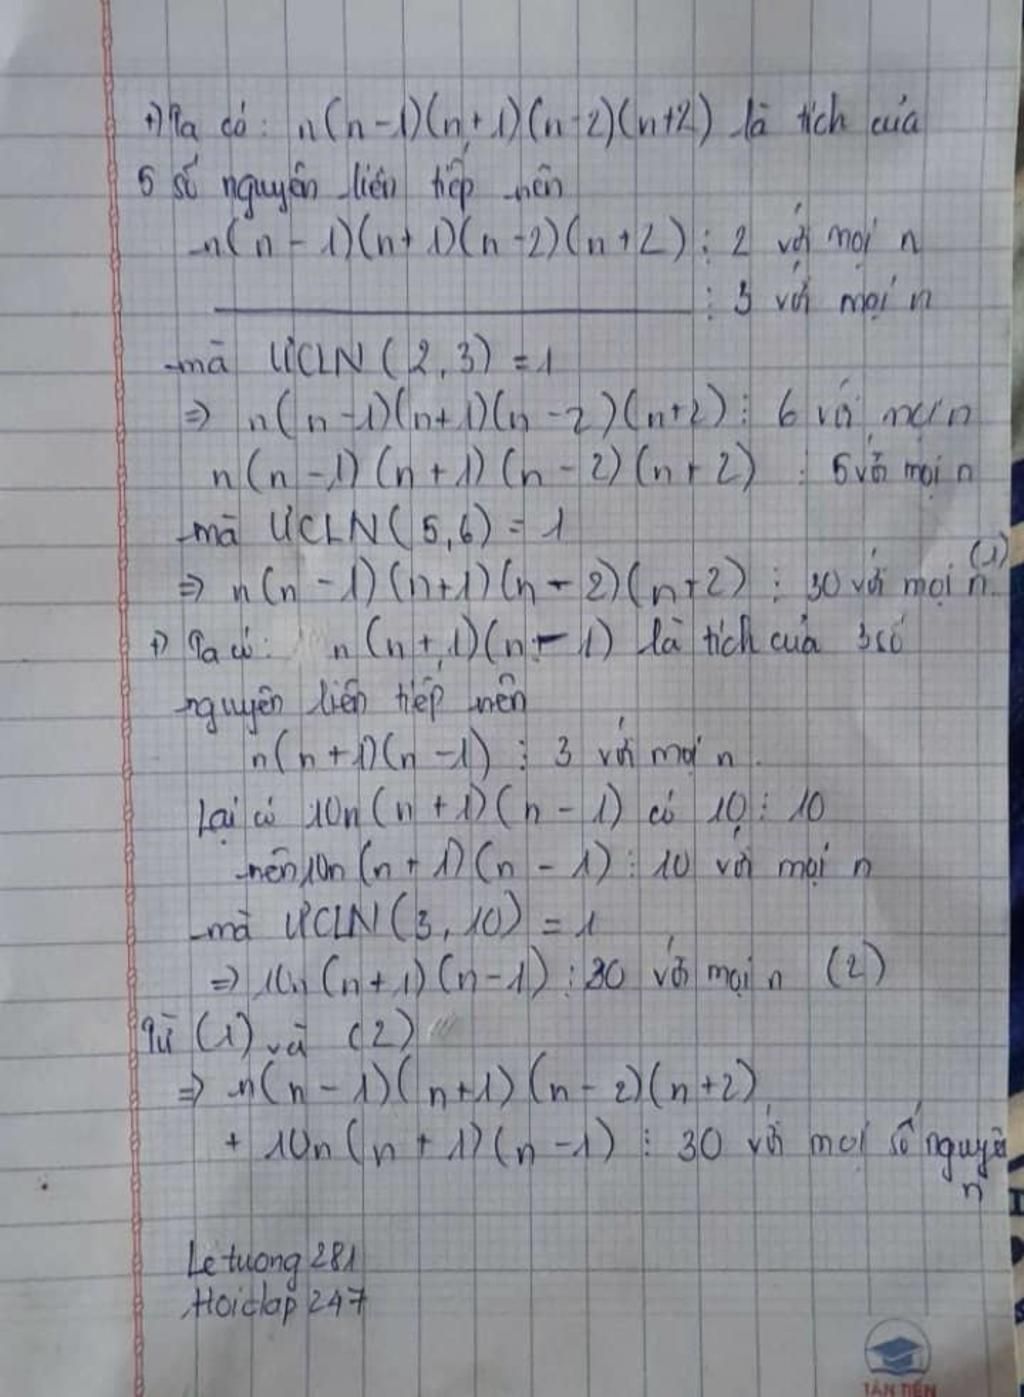 +) Ta có: n(n-1)(n+1)(n-2)(n+2) là tích của
5 số nguyên liên tiếp nên
n(n-1)(n+1)(n-2)(n+2) ⋮ 2 với mọi n
⋮ 3 với mọi n
mà ƯCLN(2,3) = 1
=> n(n-1)(n+1)(n-2)(n+2) ⋮ 6 với mọi n
n(n-1)(n+1)(n-2)(n+2) ⋮ 5 với mọi n
mà ƯCLN(5,6) = 1
=> n(n-1)(n+1)(n-2)(n+2) ⋮ 30 với mọi n (1)
+) Ta có: n(n+1)(n-1) là tích của 3 số
nguyên liên tiếp nên
n(n+1)(n-1) ⋮ 3 với mọi n.
Lại có 10n(n+1)(n-1) có 10 ⋮ 10
nên 10n(n+1)(n-1) ⋮ 10 với mọi n
mà ƯCLN(3,10) = 1
=> 10n(n+1)(n-1) ⋮ 30 với mọi n (2)
Từ (1) và (2)
=> n(n-1)(n+1)(n-2)(n+2)
+ 10n(n+1)(n-1) ⋮ 30 với mọi số nguyên
n
Letuong281
Hoidap247
TÂN TIẾN